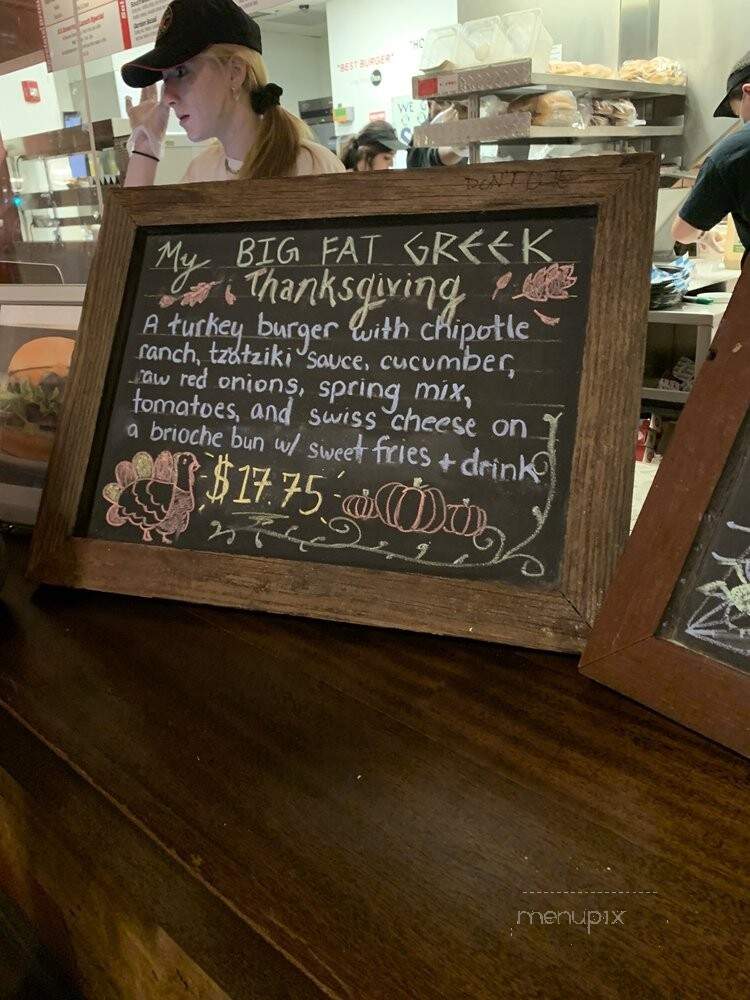 "BEST BURGER"
WE
My BIG FAT GREEK
Thanksgiving
A turkey burger with chipotle
ranch, tzatziki sauce, cucumber,
raw red onions, spring mix,
tomatoes, and swiss cheese on
a brioche bun w/ sweet fries + drink
$17.75
menupix